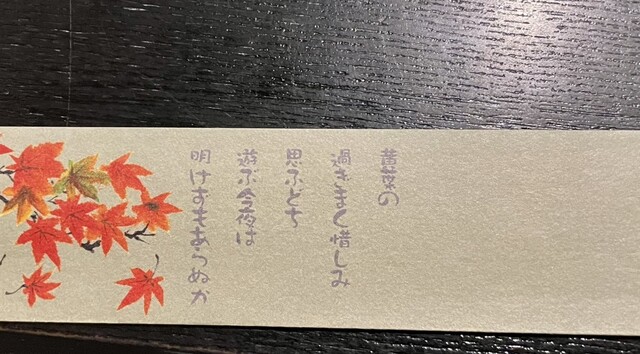 黄葉の
過ぎまく惜しみ
思ふどち
遊ぶ今夜は
明けずもあらぬか